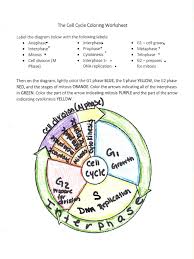 The Cell Cycle Coloring Worksheet
Label the diagram below with the following labels:
Anaphase
Interphase
G1 – cell grows
Cell division (M Phase)
Interphase
Metaphase
Mitosis
Cytokinesis
Prophase
Telophase
Interphase S-
DNA replication
mitosis
Then on the diagram, lightly color the G1 phase BLUE, the S phase YELLOW, the G2 phase
RED, and the stages of mitosis ORANGE. Color the arrows indicating all of the interphases
in GREEN. Color the part of the arrow indicating mitosis PURPLE and the part of the arrow
indicating cytokinesis YELLOW.
Cell division (M phase)
Cytokinesis
G1
Growth
Cell
Cycle
G2
Prepare
for
Mitosis
S
DNA Replication
Interphase